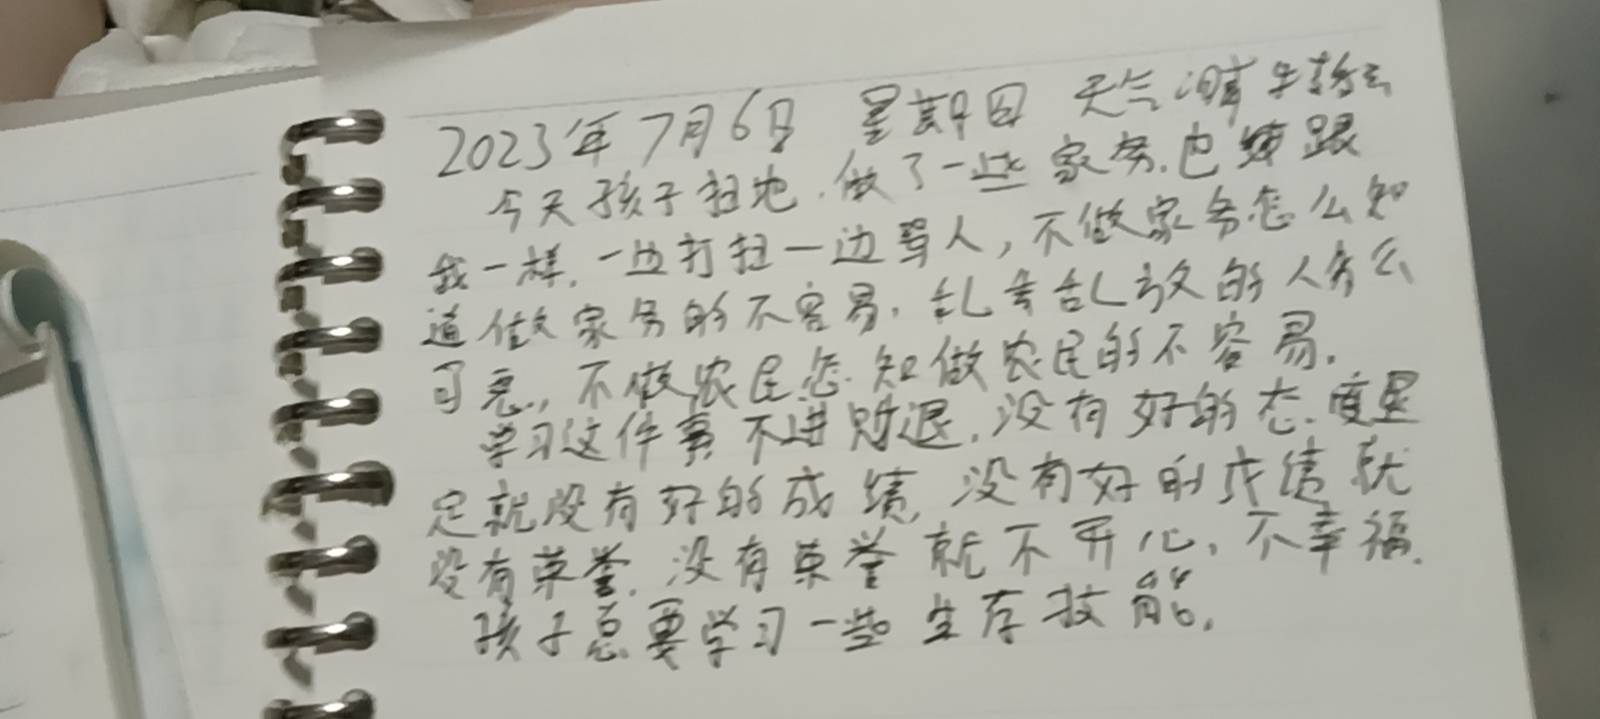 2023年7月6日 星期四 天气 晴 转云
今天孩子扫地.做了一些家务.也跟
我一样.一边打扫一边骂人,不做家务怎么知
道做家务的不容易.乱丢乱放的人多么
可恶,不做农民怎知做农民的不容易.
学习这件事不进则退.没有好的态度
定就没有好的成绩,没有好的成绩就
没有荣誉.没有荣誉就不开心,不幸福.
孩子总要学习一些生存技能.